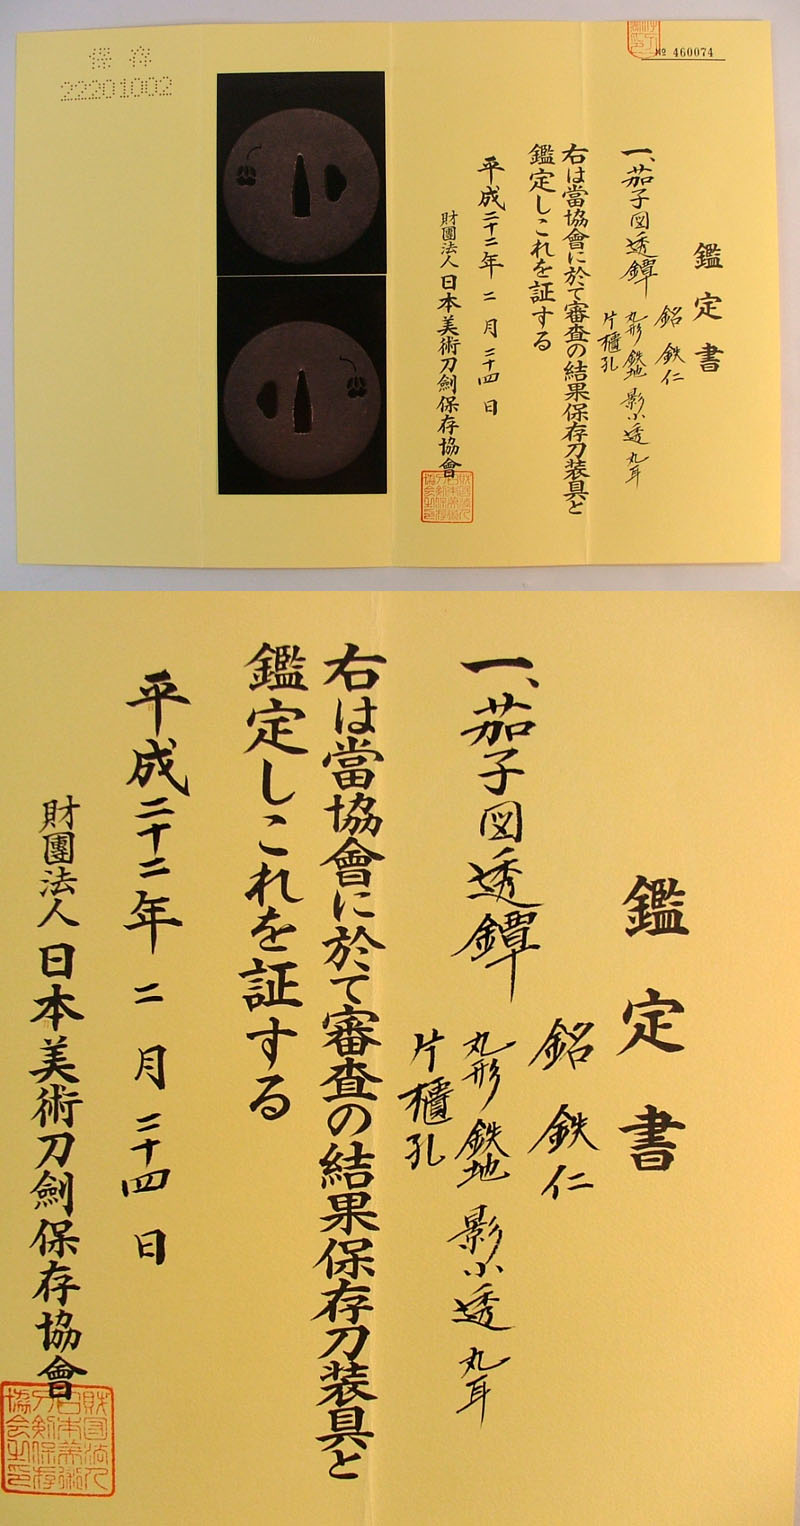 保存
22201002
№ 460074
鑑定書
銘 鉄仁
一、茄子図透鐔
丸形 鉄地 影小透 丸耳
片櫃孔
右は當協會に於て審査の結果保存刀装具と
鑑定しこれを証する
平成二十二年 二 月 二十四 日
財團法人 日本美術刀劍保存協會
鑑定書
銘 鉄仁
一、茄子図透鐔
丸形 鉄地 影小透 丸耳
片櫃孔
右は當協會に於て審査の結果保存刀装具と
鑑定しこれを証する
平成二十二年 二 月 二十四 日
財團法人 日本美術刀劍保存協會